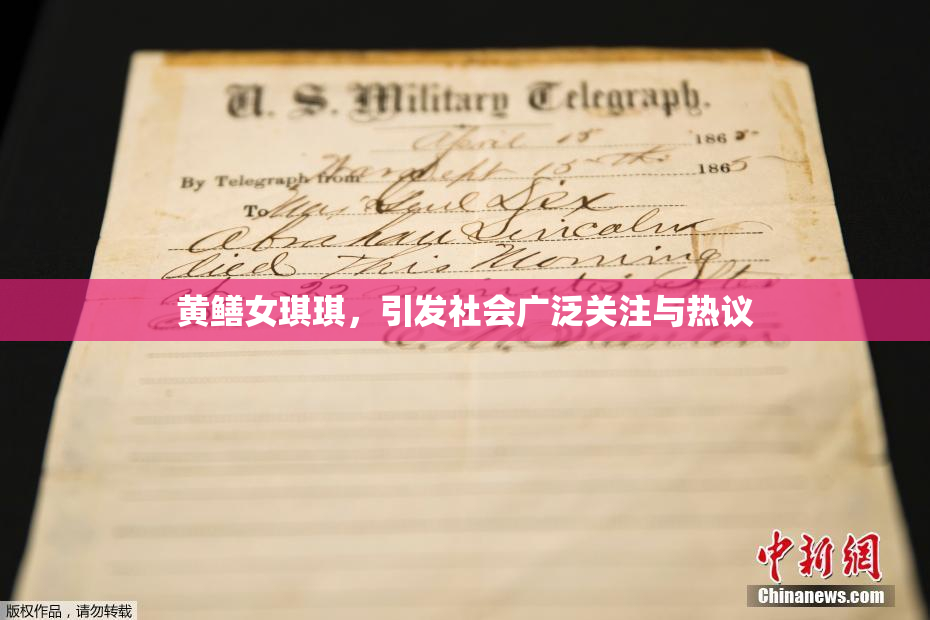 U. S. Military Telegraph.
April 15 1865
By Telegraph from War Dept 15th 1865
To Maj Genl Dix
Abraham Lincoln
died This Morning
at 22 minutes after
黄鳝女琪琪，引发社会广泛关注与热议
中新网
Chinanews.com
版权作品，请勿转载